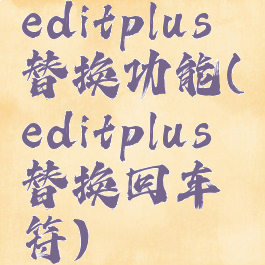 editplus
替换功能(
editplus
替换回车
符)